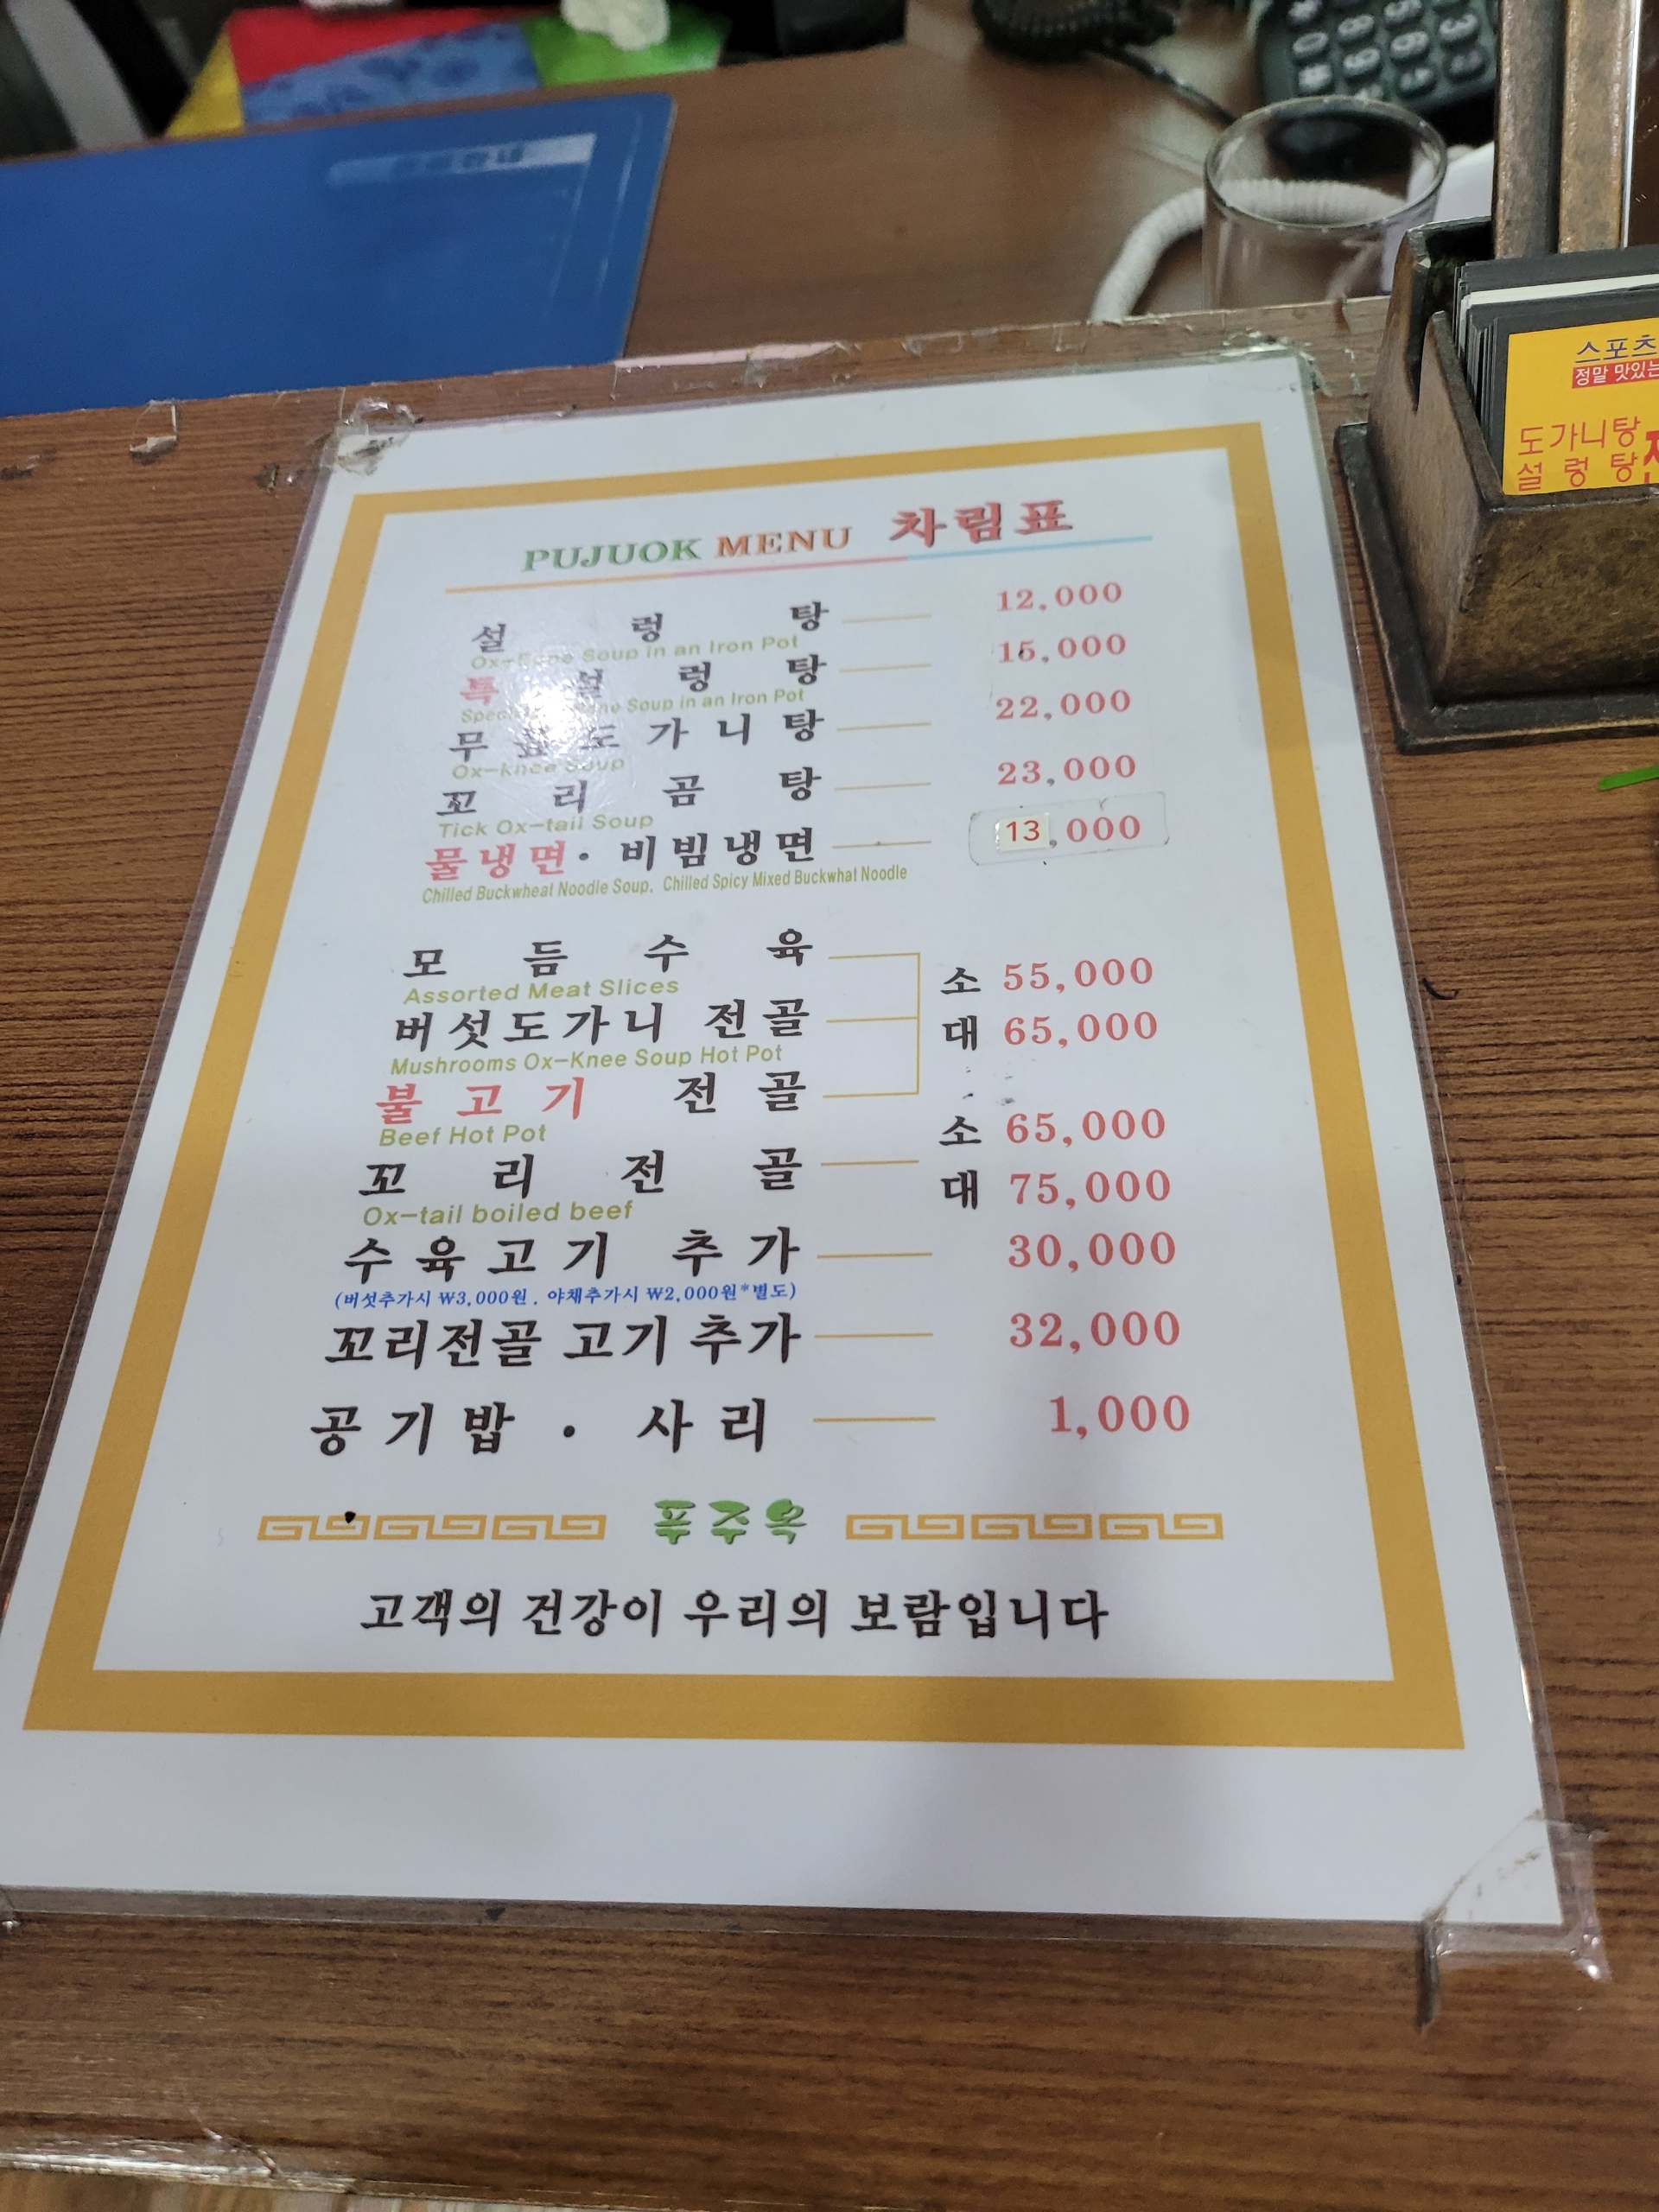 스포츠
정말 맛있는
도가니탕
설렁탕
PUJUOK MENU 차림표
설렁탕 12,000
Ox-Bone Soup in an Iron Pot
특 설렁탕 15,000
Special Ox-Bone Soup in an Iron Pot
무료도가니탕 22,000
Ox-knee Soup
꼬리곰탕 23,000
Tick Ox-tail Soup
물냉면·비빔냉면 13,000
Chilled Buckwheat Noodle Soup. Chilled Spicy Mixed Buckwhat Noodle
모듬수육 소 55,000
Assorted Meat Slices
버섯도가니 전골 대 65,000
Mushrooms Ox-Knee Soup Hot Pot
불고기 전골
Beef Hot Pot
소 65,000
꼬리전골 대 75,000
Ox-tail boiled beef
수육고기 추가 30,000
(버섯추가시 ₩3,000원. 야채추가시 ₩2,000원*별도)
꼬리전골 고기 추가 32,000
공기밥 · 사리 1,000
푸주옥
고객의 건강이 우리의 보람입니다